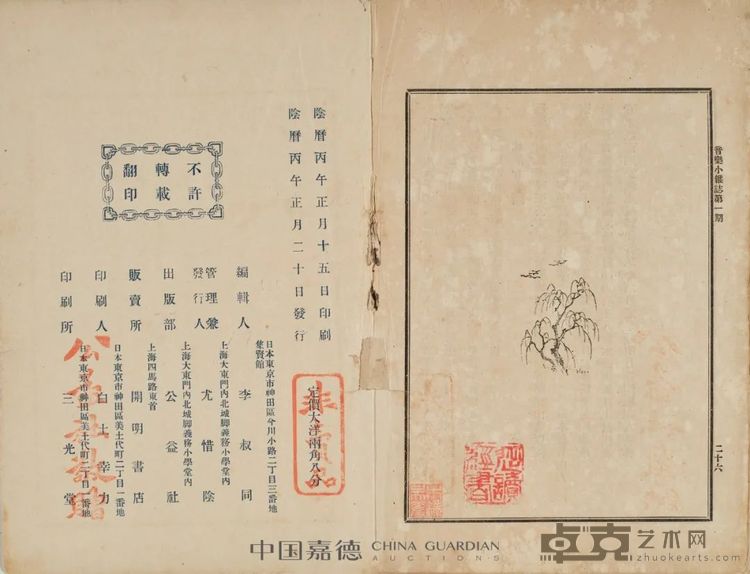 音樂小雜誌第一期
二十六
陰曆丙午正月十五日印刷
陰曆丙午正月二十日發行
不許
轉載
翻印
定價大洋兩角八分
非賣品
編輯人
日本東京市神田區今川小路二丁目三番地
集賢館
李叔同
管理兼
發行人
上海大東門內北城脚義務小學堂內
尤惜陰
出版部
上海大東門內北城脚義務小學堂內
公益社
販賣所
上海四馬路東首
開明書店
印刷人
日本東京市神田區美土代町二丁目一番地
白土幸力
印刷所
日本東京市神田區美土代町二丁目一番地
三光堂
中国嘉德 CHINA GUARDIAN
AUCTIONS
卓克艺术网
www.zhuokearts.com